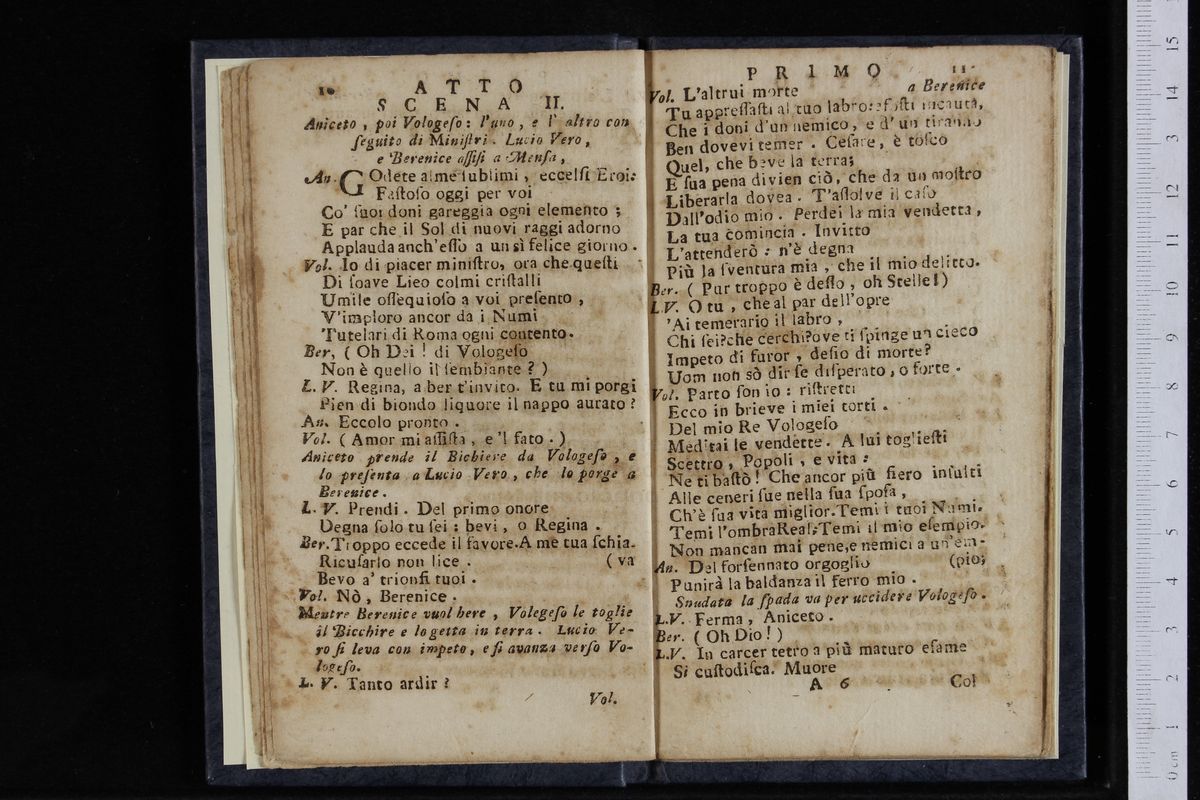 10 ATTO
SCENA II.
Aniceto, poi Vologeſo: l'uno, e l' altro con
ſeguito di Miniſtri. Lucio Vero,
e Berenice aſſiſi a Menſa,
An. GOdete alme ſublimi, eccelſi Eroi:
Faſtoſo oggi per voi
Co' ſuoi doni gareggia ogni elemento;
E par che il Sol di nuovi raggi adorno
Applauda anch'eſſo a un sì felice giorno.
Vol. Io di piacer miniſtro, ora che queſti
Di ſoave Lieo colmi criſtalli
Umile oſſequioſo a voi preſento,
V'imploro ancor da i Numi
Tutelari di Roma ogni contento.
Ber, (Oh Dei! di Vologeſo
Non è quello il ſembiante?)
L. V. Regina, a ber t'invito. E tu mi porgi
Pien di biondo liquore il nappo aurato?
An. Eccolo pronto.
Vol. (Amor mi aſſiſta, e 'l fato.)
Aniceto prende il Bichiere da Vologeſo, e
lo preſenta a Lucio Vero, che lo porge a
Berenice.
L. V. Prendi. Del primo onore
Degna ſolo tu ſei: bevi, o Regina.
Ber. Troppo eccede il favore. A me tua ſchia-
Ricuſarlo non lice. (va
Bevo a' trionfi tuoi.
Vol. Nò, Berenice.
Mentre Berenice vuol bere, Volegeſo le toglie
il Bicchire e lo getta in terra. Lucio Ve-
ro ſi leva con impeto, e ſi avanza verſo Vo-
logeſo.
L. V. Tanto ardir?
Vol.
PRIMO 11
Vol. L'altrui morte a Berenice
Tu appreſſaſti al tuo labro: e foſti incauta,
Che i doni d'un nemico, e d' un tiranno
Ben dovevi temer. Ceſare, è toſco
Quel, che beve la terra;
E ſua pena divien ciò, che da un moſtro
Liberarla dovea. T'aſſolve il caſo
Dall'odio mio. Perdei la mia vendetta,
La tua comincia. Invitto
L'attenderò: n'è degna
Più la ſventura mia, che il mio delitto.
Ber. (Pur troppo è deſſo, oh Stelle!)
L.V. O tu, che al par dell'opre
'Ai temerario il labro,
Chi ſei? che cerchi? ove ti ſpinge un cieco
Impeto di furor, deſio di morte?
Uom non sò dir ſe diſperato, o forte.
Vol. Parto ſon io: riſtretti
Ecco in brieve i miei torti.
Del mio Re Vologeſo
Meditai le vendette. A lui toglieſti
Scettro, Popoli, e vita:
Ne ti baſtò! Che ancor più fiero inſulti
Alle ceneri ſue nella ſua ſpoſa,
Ch'è ſua vita miglior. Temi i tuoi Numi.
Temi l'ombra Real; Temi il mio eſempio.
Non mancan mai pene, e nemici a un'em-
An. Del forſennato orgoglio (pio;
Punirà la baldanza il ferro mio.
Snudata la ſpada va per uccidere Vologeſo.
L.V. Ferma, Aniceto.
Ber. (Oh Dio!)
L.V. In carcer tetro a più maturo eſame
Si cuſtodiſca. Muore
A 6 Col
0 cm 1 2 3 4 5 6 7 8 9 10 11 12 13 14 15